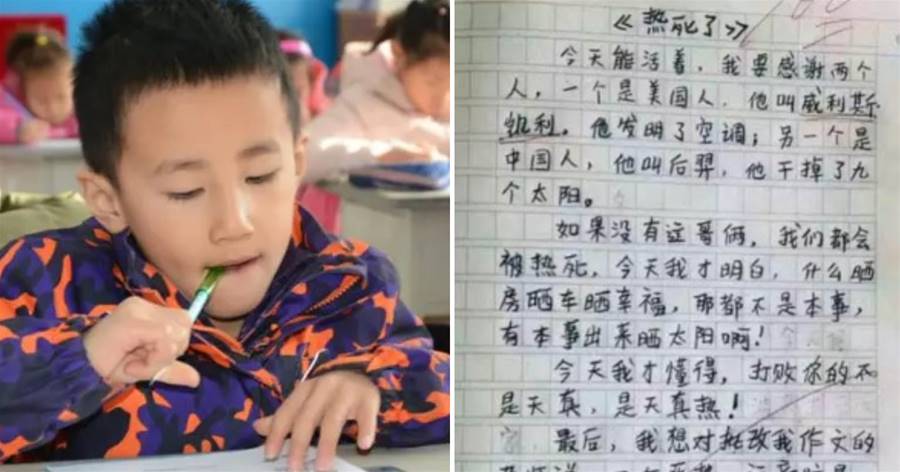 《热死了》
今天能活着，我要感谢两个
人，一个是美国人，他叫威利斯
凯利。他发明了空调；另一个是
中国人，他叫后羿，他干掉了九
个太阳。
如果没有这哥俩，我们都会
被热死，今天我才明白，什么晒
房晒车晒幸福，那都不是本事，
有本事出来晒太阳啊！
今天我才懂得，打败你的不
是天真，是天真热！
最后，我想对批改我作文的